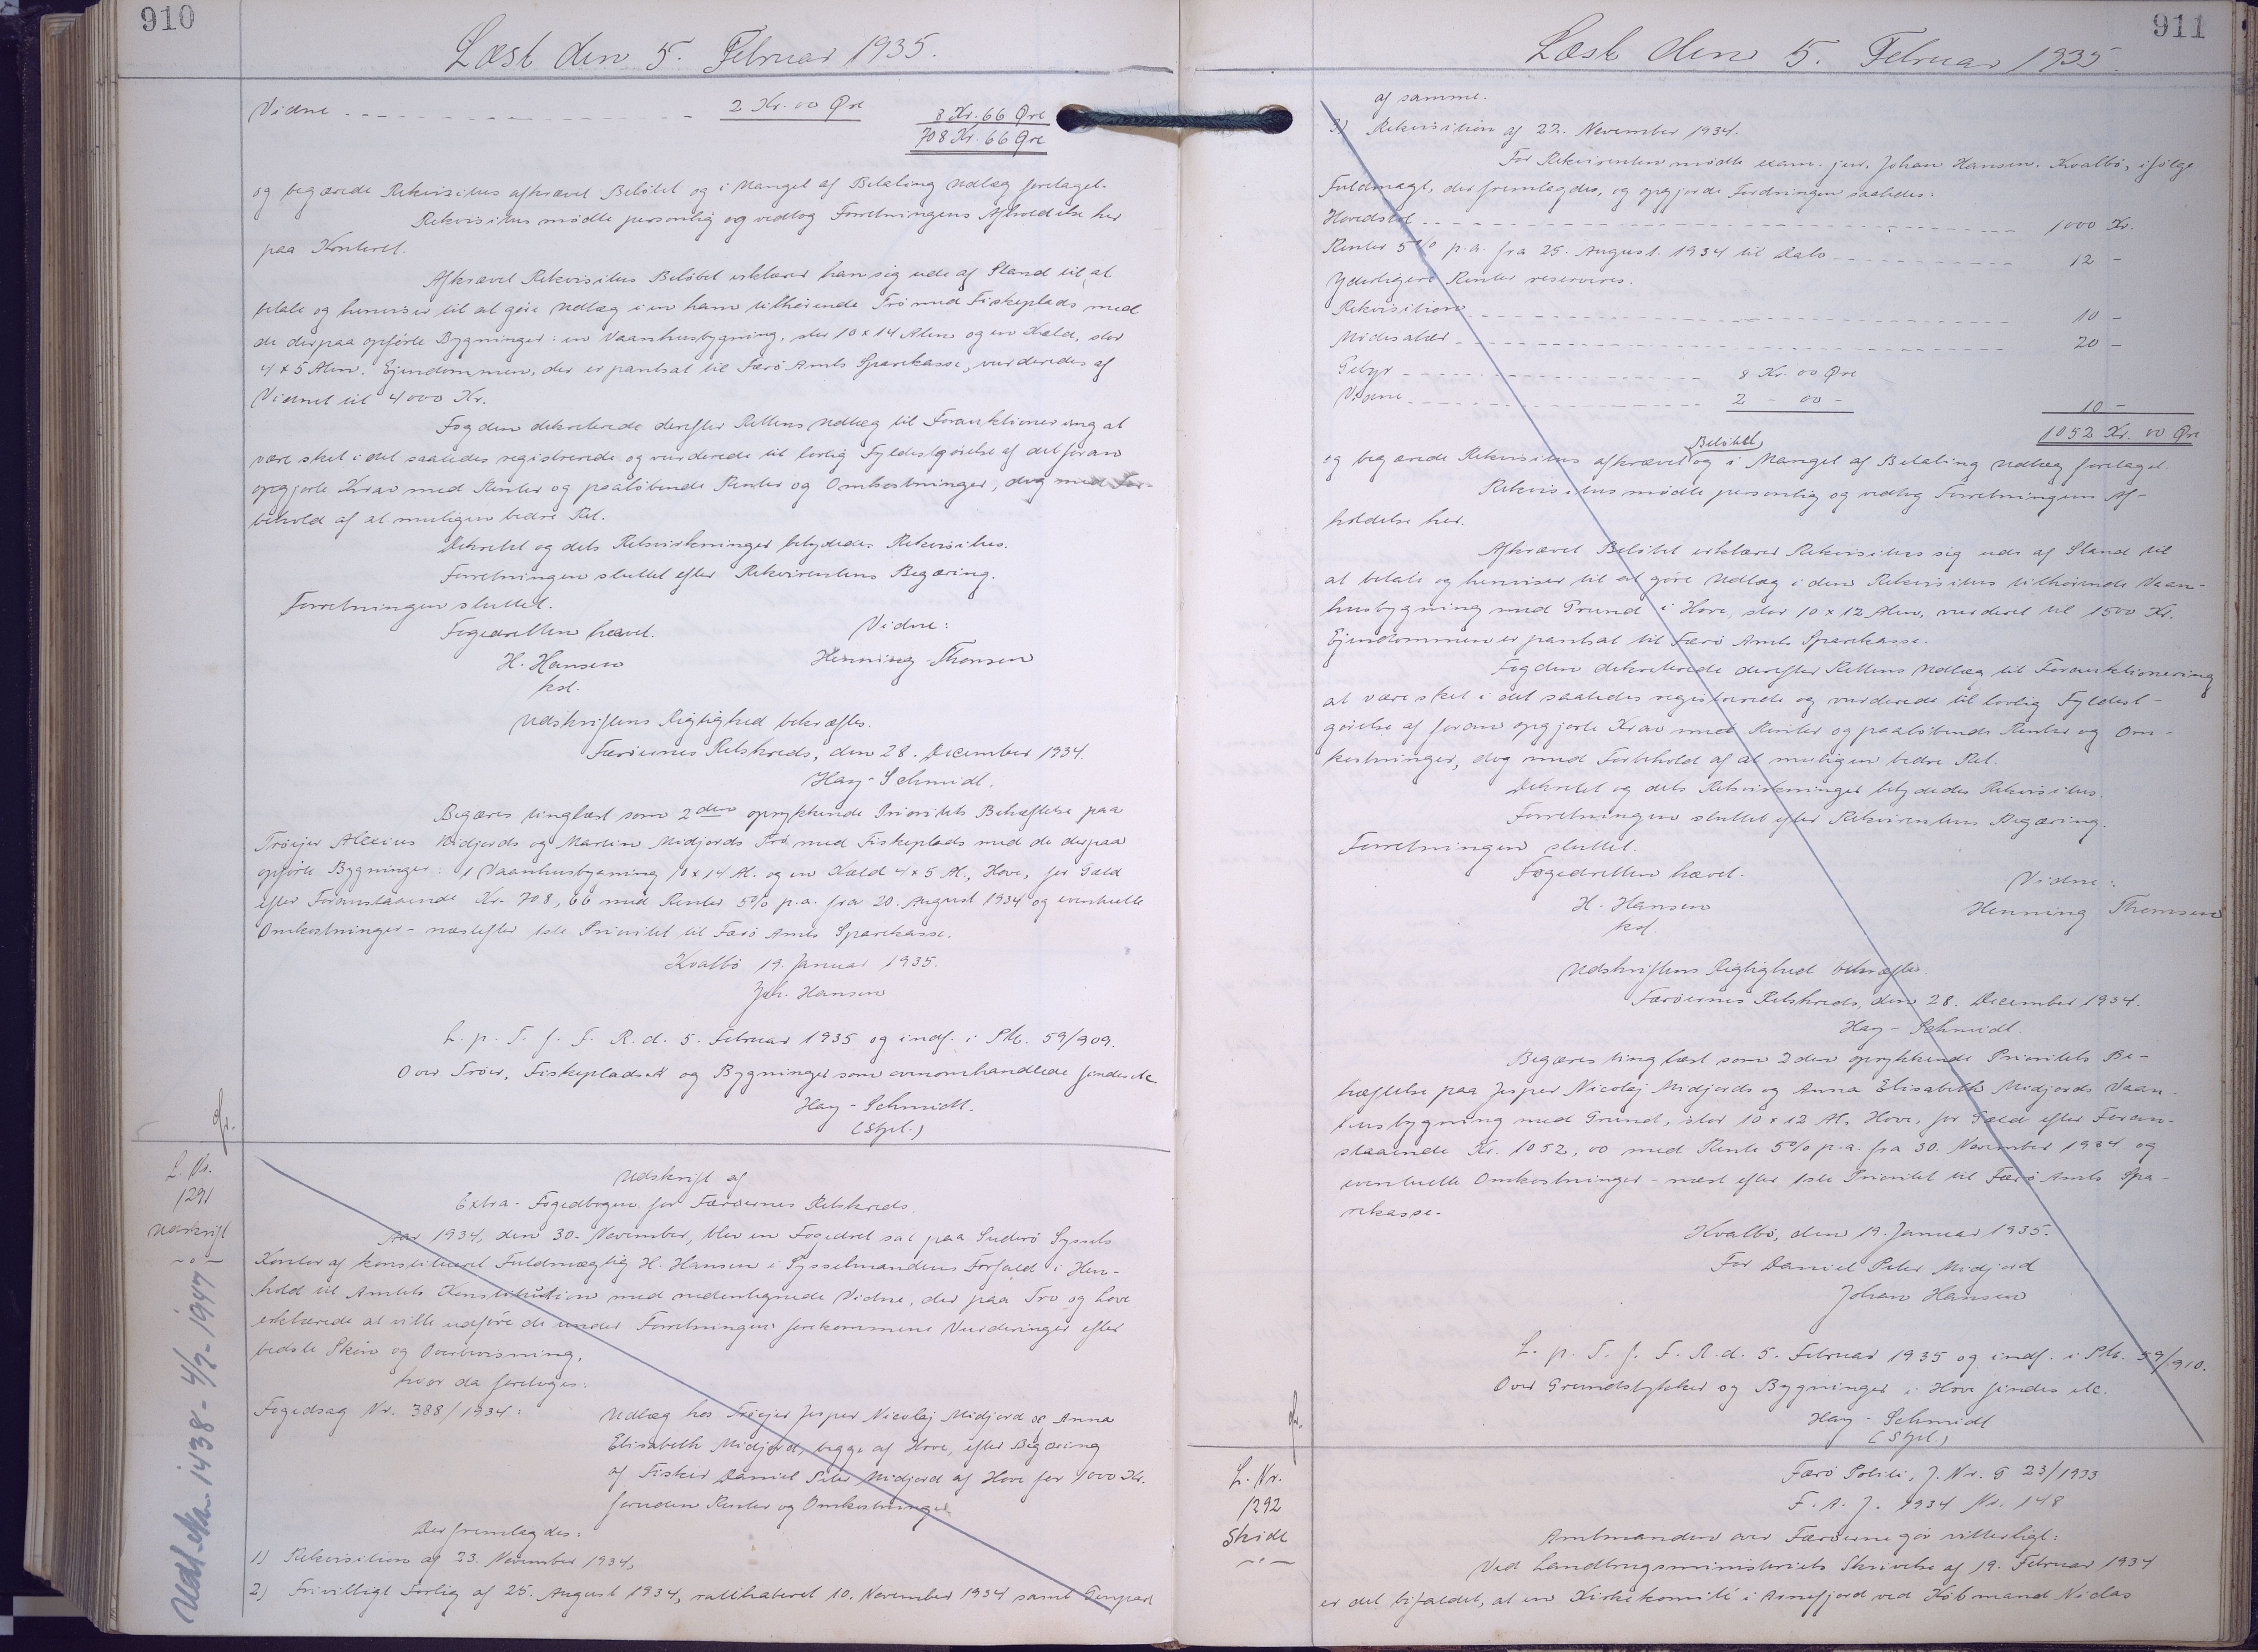 910
Læst den 5. Februar 1935.
Vidne 2 Kr. 00 Øre 8 Kr. 66 Øre
708 Kr. 66 Øre
og begærede Rekvisitus afkrævet Beløbet og i Mangel af Betaling Udlæg foretaget.
Rekvisitus mødte personlig og vedtog Forretningens Afholdelse her
paa Kontoret.
Afkrævet Rekvisitus Beløbet erklærer han sig ude af Stand til at
betale og henviser til at gøre Udlæg i en ham tilhørende Trö med Fiskeplads med
de derpaa opførte Bygninger: en Vaanhusbygning, stor 10 x 14 Alen og en Kæld, stor
4 x 5 Alen. Ejendommen, der er pantsat til Færö Amts Sparekasse, vurderedes af
Vidnet til 4000 Kr.
Fogden dekreterede derefter Rettens Udlæg til Forauktionering at
være sket i det saaledes registrerede og vurderede til lovlig Fyldestgørelse af det foran
opgjorte Krav med Renter og paaløbende Renter og Omkostninger, dog med For-
behold af at muligen bedre Ret.
Dekretet og dets Retsvirkninger betydedes Rekvisitus.
Forretningen sluttet efter Rekvirentens Begæring.
Forretningen sluttet.
Fogedretten hævet.
Vidne:
H. Hansen
Henning Thomsen
kst.
Udskriftens Rigtighed bekræftes.
Færöernes Retskreds, den 28. December 1934.
Hay-Schmidt.
Begæres tinglæst som 2den oprykkende Prioritets Behæftelse paa
Tröejer Alexius Midjords og Martin Midjords Trö med Fiskeplads med de derpaa
opførte Bygninger: 1 Vaanhusbygning 10 x 14 Al. og en Kæld 4 x 5 Al., Hove, for Gæld
efter Foranstaaende Kr. 708,66 med Renter 5% p.a. fra 20. August 1934 og eventuelle
Omkostninger - næstefter 1ste Prioritet til Færö Amts Sparekasse.
Kvalbö 19. Januar 1935.
Joh. Hansen
L. p. T. f. F. R. d. 5. Februar 1935 og indf. i Ptb. 59/909.
Over Tröer, Fiskepladser og Bygninger som ovenomhandlede findes etc.
Hay-Schmidt.
(Stpl.)
gr.
L. Nr.
1291
Udskrift
Udsl. efter 1438 - 4/7 - 1947
Udskrift af
Extra-Fogedbogen for Færöernes Retskreds.
Aar 1934, den 30. November, blev en Fogedret sat paa Suderö Syssels
Kontor af konstitueret Fuldmægtig H. Hansen i Sysselmandens Forfald i Hen-
hold til Amtets Konstitution med nedentegnede Vidne, der paa Tro og Love
erklærede at ville udføre de under Forretningen forekommene Vurderinger efter
bedste Skøn og Overbevisning,
hvor da foretoges:
Fogedsag Nr. 388/1934:
Udlæg hos Tröejer Jesper Nicolaj Midjord og Anna
Elisabeth Midjord, begge af Hove, efter Begæring
af Fisker Daniel Peter Midjord af Hove for 1000 Kr.
foruden Renter og Omkostninger
Der fremlagdes:
1) Rekvisition af 23. November 1934,
2) Frivilligt Forlig af 25. August 1934, ratihaberet 10. November 1934 samt Genpart
911
Læst den 5. Februar 1935.
af samme.
3) Rekvisition af 22. November 1934.
For Rekvirenten mødte exam. jur. Johan Hansen, Kvalbö, ifølge
Fuldmagt, der fremlagdes, og opgjorde Fordringen saaledes:
Hovedstol 1000 Kr.
Renter 5% p.a. fra 25. August 1934 til Dato 12 -
Yderligere Renter reserveres.
Rekvisition 10 -
Mødesalær 20 -
Gebyr 8 Kr. 00 Øre
Vidne 2 - 00 - 10 -
1052 Kr. 00 Øre
og begærede Rekvisitus afkrævet Beløbet, og i Mangel af Betaling Udlæg foretaget.
Rekvisitus mødte personlig og vedtog Forretningens Af-
holdelse her.
Afkrævet Beløbet erklærer Rekvisitus sig ude af Stand til
at betale og henviser til at gøre Udlæg i den Rekvisitus tilhørende Vaan-
husbygning med Grund i Hove, stor 10 x 12 Alen, vurderet til 1500 Kr.
Ejendommen er pantsat til Færö Amts Sparekasse.
Fogden dekreterede derefter Rettens Udlæg til Forauktionering
at være sket i det saaledes registrerede og vurderede til lovlig Fyldest-
gørelse af foran opgjorte Krav med Renter og paaløbende Renter og Om-
kostninger, dog med Forbehold af at muligen bedre Ret.
Dekretet og dets Retsvirkninger betydedes Rekvisitus.
Forretningen sluttet efter Rekvirentens Begæring.
Forretningen sluttet.
Fogedretten hævet.
Vidne:
H. Hansen
Henning Thomsen
kst.
Udskriftens Rigtighed bekræftes.
Færöernes Retskreds, den 28. December 1934.
Hay-Schmidt.
Begæres tinglæst som 2den oprykkende Prioritets Be-
hæftelse paa Jesper Nicolaj Midjords og Anna Elisabeth Midjords Vaan-
husbygning med Grund, stor 10 x 12 Al. Hove, for Gæld efter Foran-
staaende Kr. 1052,00 med Rente 5% p.a. fra 30. November 1934 og
eventuelle Omkostninger - næst efter 1ste Prioritet til Færö Amts Spa-
rekasse.
Kvalbö, den 19. Januar 1935.
For Daniel Peter Midjord
Johan Hansen
L. p. T. f. F. R. d. 5. Februar 1935 og indf. i Ptb. 59/910.
Over Grundstykker og Bygninger i Hove findes etc.
Hay-Schmidt
(Stpl.)
gr.
L. Nr.
1292
Skøde
Færö Politi, J. Nr. G 23/1933
F. A. J. 1934 Nr. 148
Amtmanden over Færöerne gör vitterligt:
Ved Landbrugsministeriets Skrivelse af 19. Februar 1934
er det bifaldet, at en Kirkekomité i Arnefjord ved Købmand Niclas